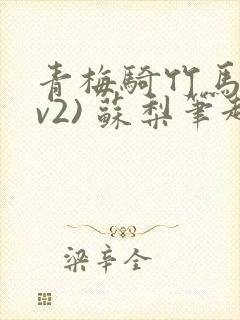 青梅騎竹馬
v2) 蘇梨筆趣
梁辛全